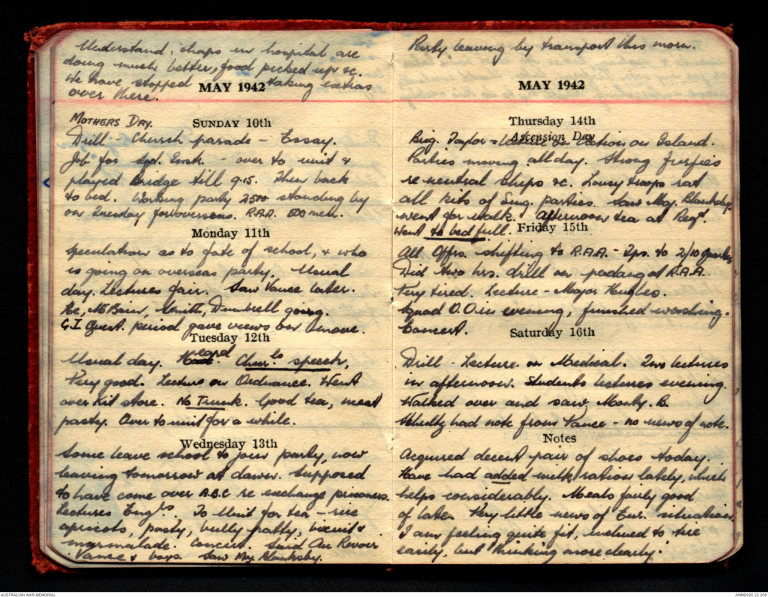 Understand, chaps in hospital are
doing much better, food picked up &c.
We have stopped taking extras
over there.
MAY 1942
MOTHERS DAY.
SUNDAY 10th
Drill - Church parade - Essay.
Job for Sgd. - over to unit &
played Bridge till 9.15. Then back
to bed. Working party 2500 standing by
on Tuesday for overseas. R.A.A. 600 men.
Monday 11th
Speculation as to fate of school, & who
is going on overseas party. Usual
day. Lectures fair. Saw Vance later.
He, McBain, Dumbrell going.
G.I. Quest. period gave views on
Tuesday 12th
Usual day. Heard Chur.ls speech,
Very good. Lecture on Ordnance. Went
over kit store. No Trunk. Good tea, meat
pasty. Over to unit for a while.
Wednesday 13th
Some leave school to join party, now
leaving tomorrow at dawn. Supposed
to have come over A.B.C re exchange prisoners.
Lectures Eng.ls. To Unit for tea - rice
apricots, pasty, bully patty, biscuit &
marmalade. Concert. Said Au Revoir
Vance & boys. Saw Maj Blanksby.
Party leaving by transport this morn.
MAY 1942
Thursday 14th
Ascension Day
Brig. Taylor - lecture on Action on Island.
Parties moving all day. Strong furfies
re neutral ships &c. Lousy troops rat
all kits of Sing. parties. Saw Maj. Blanksby.
Went for walk. Afternoon tea at Regt.
Went to bed full.
Friday 15th
All Offrs. shifting to R.A.A. - Ips. to 2/10 quarters
Did two hrs. drill on padang at R.A.A.
Very tired. Lecture - Major Hughes.
Squad O.O. in evening, finished washing.
Concert.
Saturday 16th
Drill - Lecture on Medical. Two lectures
in afternoon. Students lectures evening.
Walked over and saw Monty. B.
had note from Vance - no news of note.
Notes
Acquired decent pair of shoes today.
Have had added milk ration lately, which
helps considerably. Meals fairly good
of late. Very little news of Eur. situation.
I am feeling quite fit, inclined to tire
easily, but thinking more clearly.
AUSTRALIAN WAR MEMORIAL